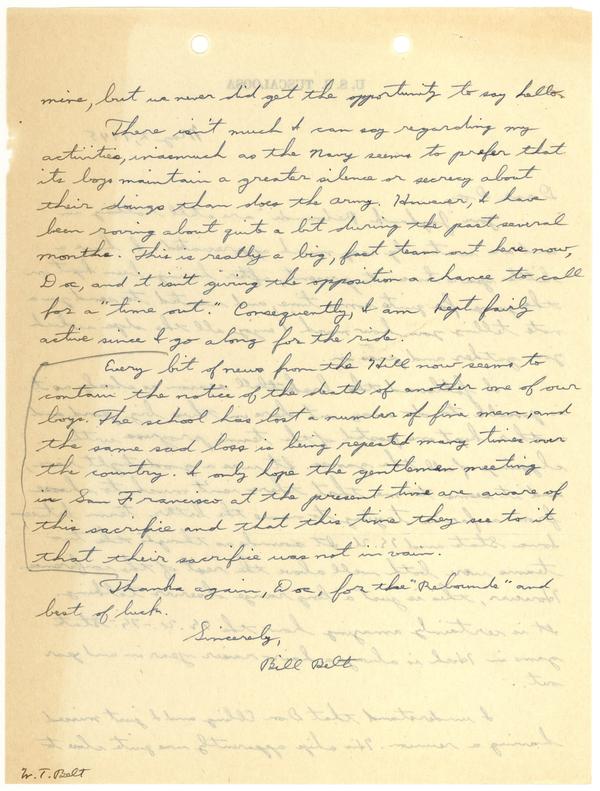 mine, but we never did get the opportunity to say hello.
There isn't much I can say regarding my
activities, inasmuch as the Navy seems to prefer that
its boys maintain a greater silence or secrecy about
their doings than does the Army. However, I have
been roving about quite a bit during the past several
months. This is really a big, fast team out here now,
Doc, and it isn't giving the opposition a chance to call
for a "time out." Consequently, I am kept fairly
active since I go along for the ride.
Every bit of news from the Hill now seems to
contain the notice of the death of another one of our
boys. The school has lost a number of fine men, and
the same sad loss is being repeated many times over
the country. I only hope the gentlemen meeting
in San Francisco at the present time are aware of
this sacrifice and that this time they see to it
that their sacrifice was not in vain.
Thanks again, Doc, for the "Rebounds" and
best of luck.
Sincerely,
Bill Belt
W. T. Belt